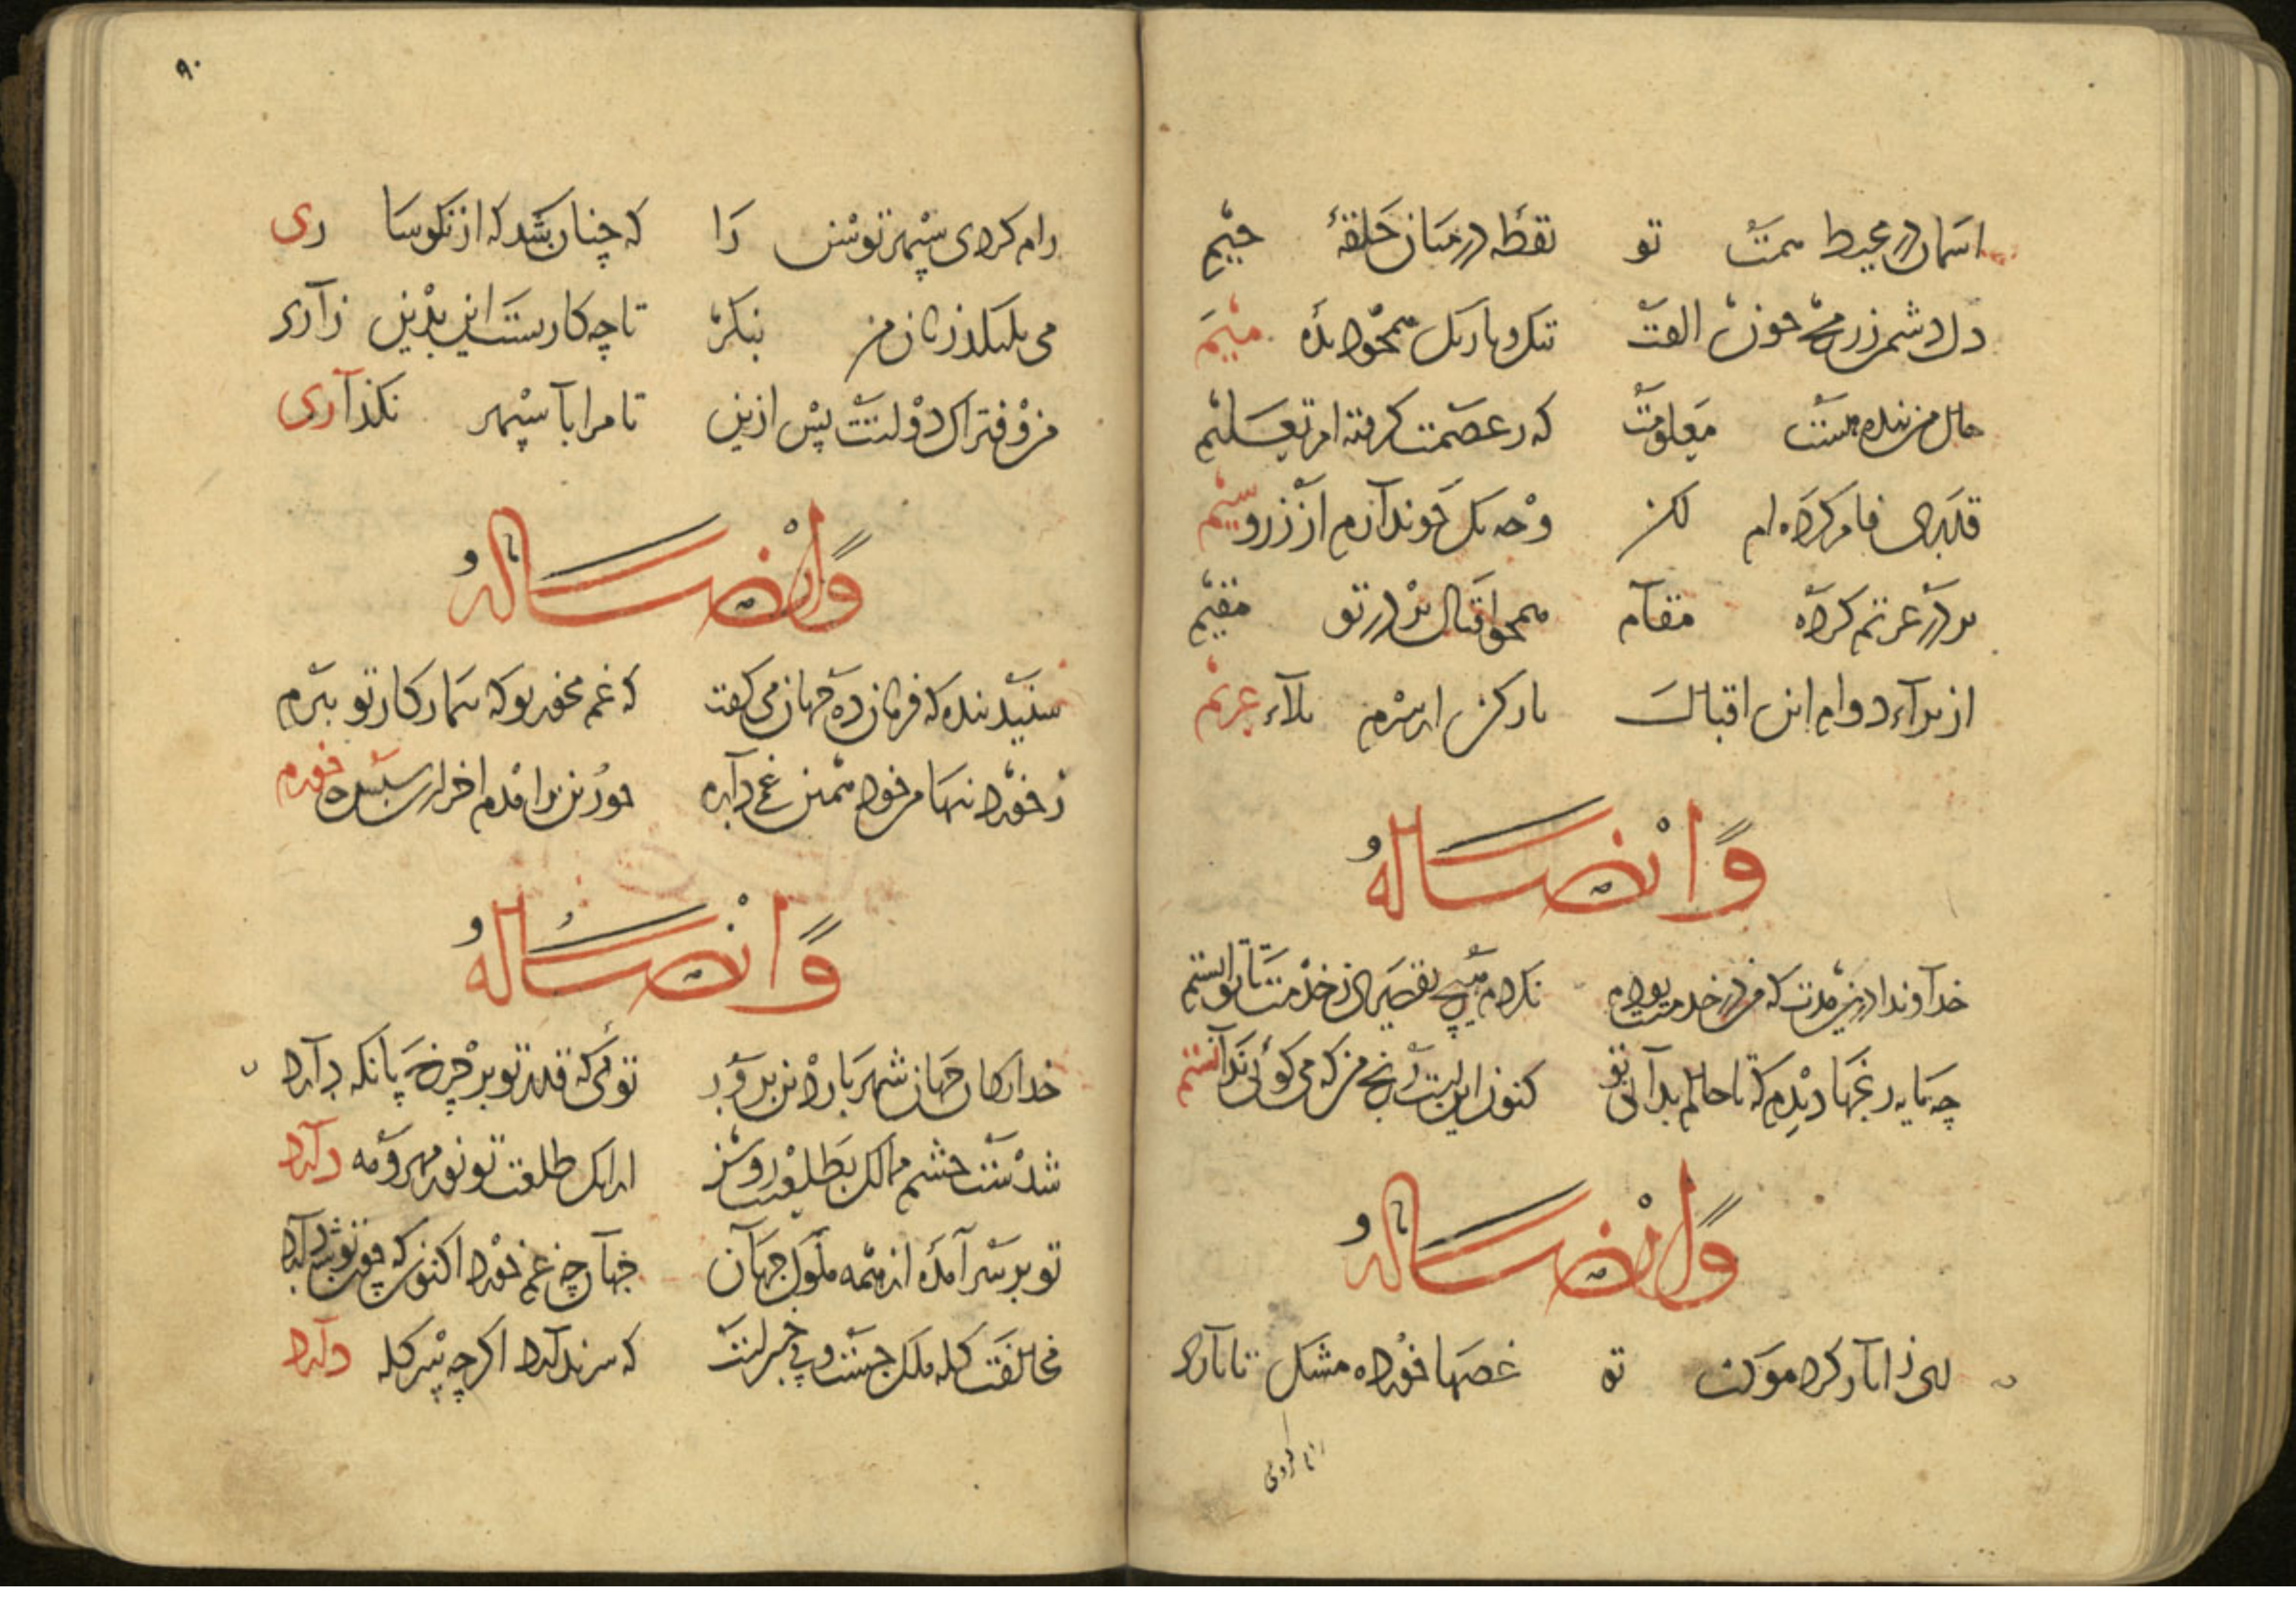 اسمان در محیط همت تو نقطه در میان حلقهٔ جیم
دل دشمن ز رمح چون الفت تنک و باریک همچو دیدهٔ میم
حال من بنده هست معلومت که در عصمت گرفته ام تعلیم
قلبهای فام کرده ام لکن وجه یک جو ندارم از زر و سیم
بر در عزتم کرده مقام همچو اقبال بر در تو مقیم
از برآء دوام این اقبالت بار کن از سرم بلآء عزیم
وایضا له
خداوندا درین مدت که من در خدمت بودم نکردم هیچ تقصیری ز خدمت تا توانستم
چه مایه رنجها دیدم که تا حالم بدانی تو کنون این است رنج من که می کوئی ندانستم
وایضا له
ای ز اثار کرد موکب تو غصها خورده مشک تاتاری
رام کردی
۹۰
رام کردی سپهر توسن را که چنان شد که از نکوساری
می بلیکد زمان من بنکر تا چه کارست این بدین زاری
من و فتراک دولتت پس ازین تا مرا با سپهر نکذاری
وایضا له
شنید بنده که فرمانده جهان می کفت که غم مخور تو که تیمار کار تو ببرم
ز خورد نیها من خود همین غم دارم چو زین برامدم اخر ازین سپس چه خورم
وایضا له
خدایکان جهان شهریار دین پرور توئی که قدر تو بر چرخ پایکه دارد
شدست چشم ممالک بطلعتت روشن از آنک طلعت تو نور مهر و مه دارد
تو بر سر آمدهٔ از همه ملوک جهان جهان چه غم خورد اکنون که چون تو شه دارد
مخالفت کله ملک جست و بی خبرست که سر ندارد اکرچه بسر کله دارد